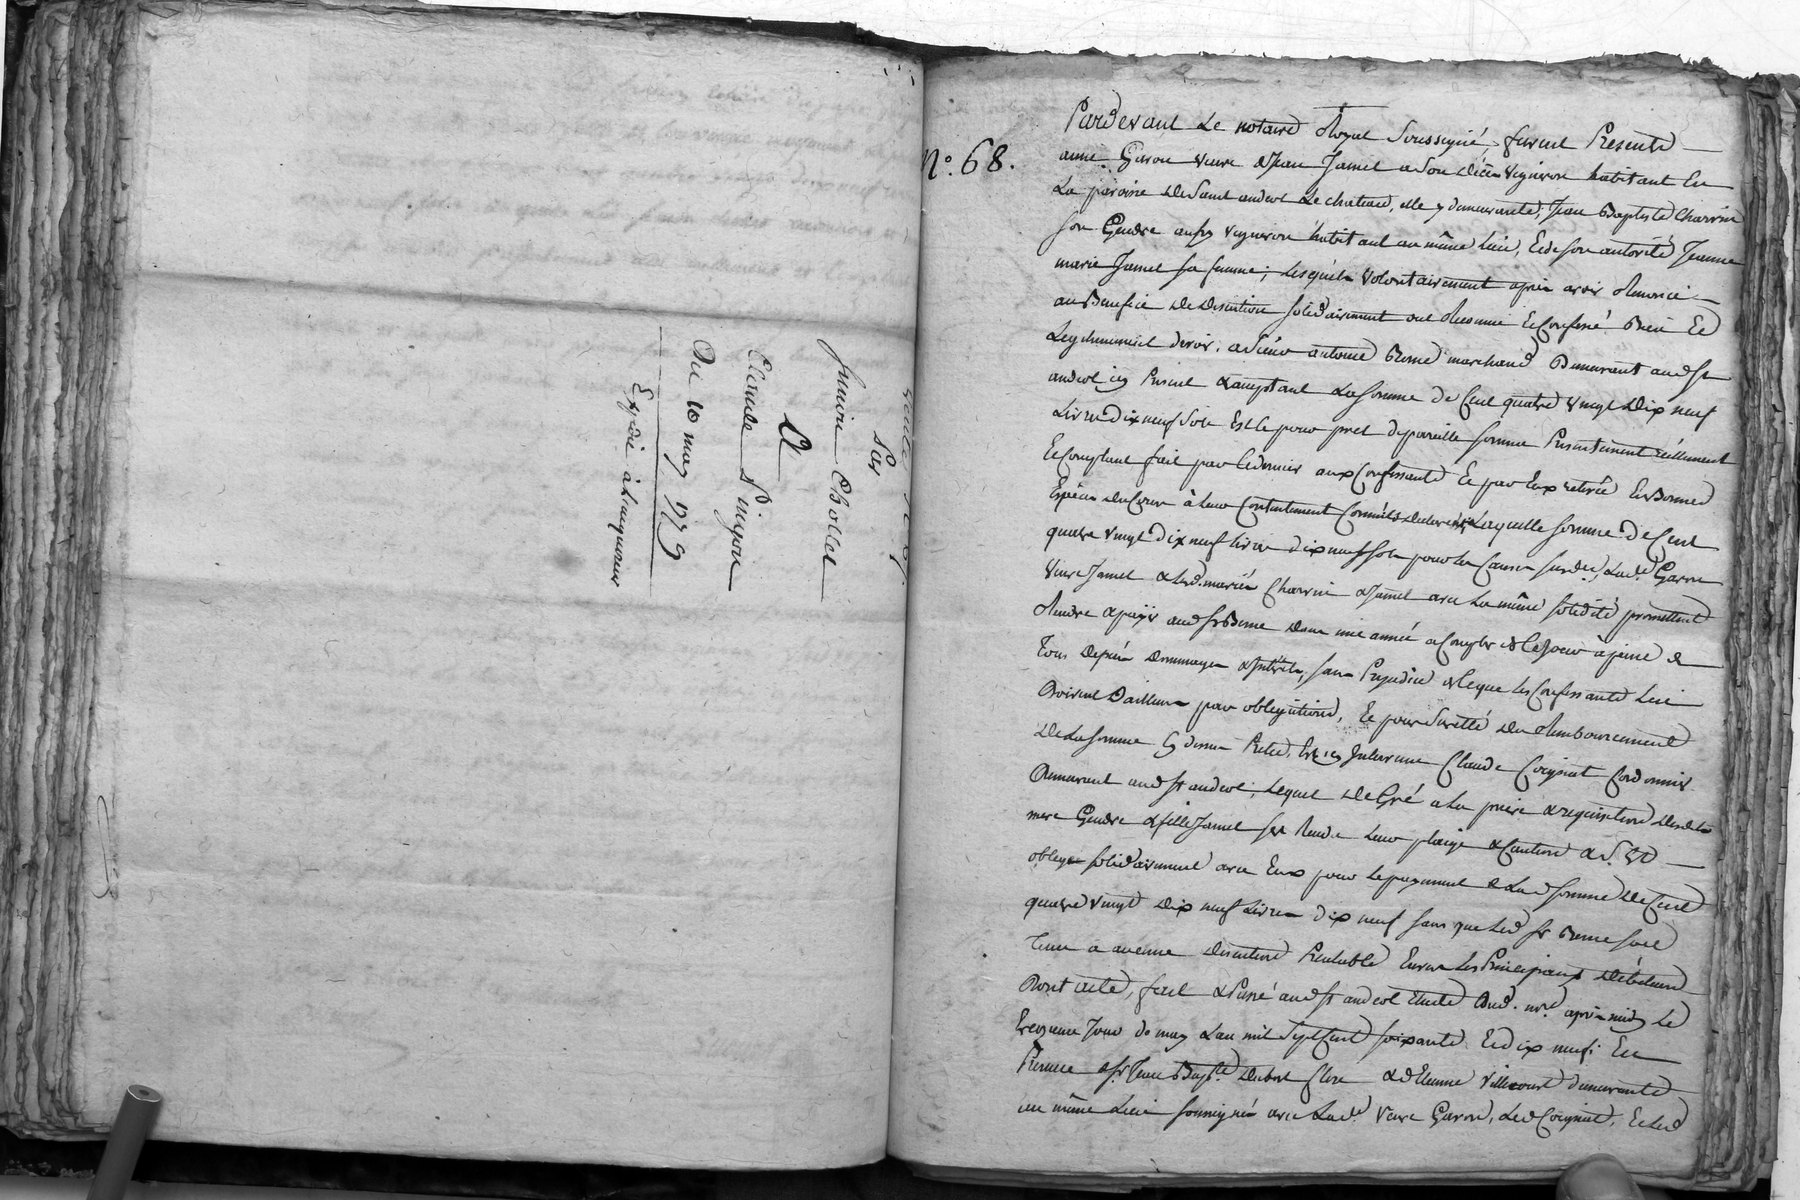 Vente N° 67.
Par
Simon Chollet
A
Claude Pinjon
Du 10 may 1779
Expédié à l'acquereur
N°. 68.
Pardevant Le notaire Royal Soussigné, furent Presents
anne Garon veuve de Jean Jamet a Son décès vigneron habitant En
La paroisse De Saint andeol Le chateau, elle y demeurante, Jean Baptiste Charvin
Son Gendre aussy vigneron habitant au même lieu, Et de son autorité Jeanne
marie Jamet sa femme; Lesquels volontairement après avoir Renoncé
au Benefice De Discution solidairement ont Reconnu Et Confessé Bien Et
Legitimement devoir, a Sieur antoine Bonne marchand Demeurant aud. St
andeol icy Present & acceptant La Somme de Cent quatre vingt Dix neuf
Livres Dix neuf Sols Et Ce pour pret de pareille Somme Presentement réellement
Et Comptant fait par Ce dernier aux Confessants Et par Eux retirée En Bonnes
Espèces du Cours à Leur Contentement Laquelle somme De Cent
quatre vingt Dix neuf livres dix neuf sols pour les Causes susd., Lad. Garon
veuve Jamet & Lesd. mariés Charvin & Jamet avec La même solidité promettent
Rendre & païer aud. Sr Bonne Dans une année a Compter de Ce jour a peine de
Tous Depens Dommages & Intérêts, sans Prejudice de Ce que Les Confessants Lui
Doivent D'ailleurs par obligations, Et pour Sureté Du Remboursement
De La somme Cy dessus Pretée, Est icy Intervenu Claude Coignat Cordonnier
Demeurant aud. St andeol, Lequel De Gré a La priere & requisition Desdits
mere Gendre & fille Jamet s'est Rendu Leur pleige & Caution & S'est
obligé solidairement avec Eux pour Le payement de Lad. somme De Cent
quatre vingt Dix neuf Livres dix neuf sans que Led. Sr Bonne soit
Tenu a aucune Discution Prealable Envers Les Principaux Débiteurs
Dont acte, fait & Passé aud. St andeol Etude Dud. nre. après midy Le
Treizieme Jour de may L'an mil Sept Cent soixante Et dix neuf; En
Presence de Sr Jean Bapte. Dubost Clerc & d'Etienne Villecourt demeurants
au même Lieu soussignés avec Lad. veuve Garon, Led. Coignat, Et Led.